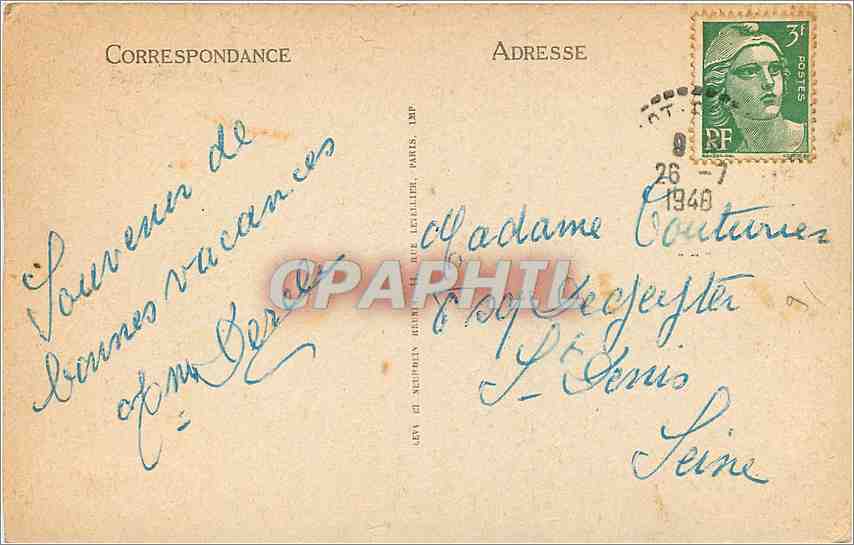 CORRESPONDANCE
ADRESSE
3f
POSTES
RF
9
26 -7
1948
Souvenir de
bonnes vacances
Madame Couturier
8 sq Degeyter
St Denis
Seine
CPAPHIL
LEVY ET NEURDEIN REUNIS 44 RUE LETELLIER, PARIS, IMP